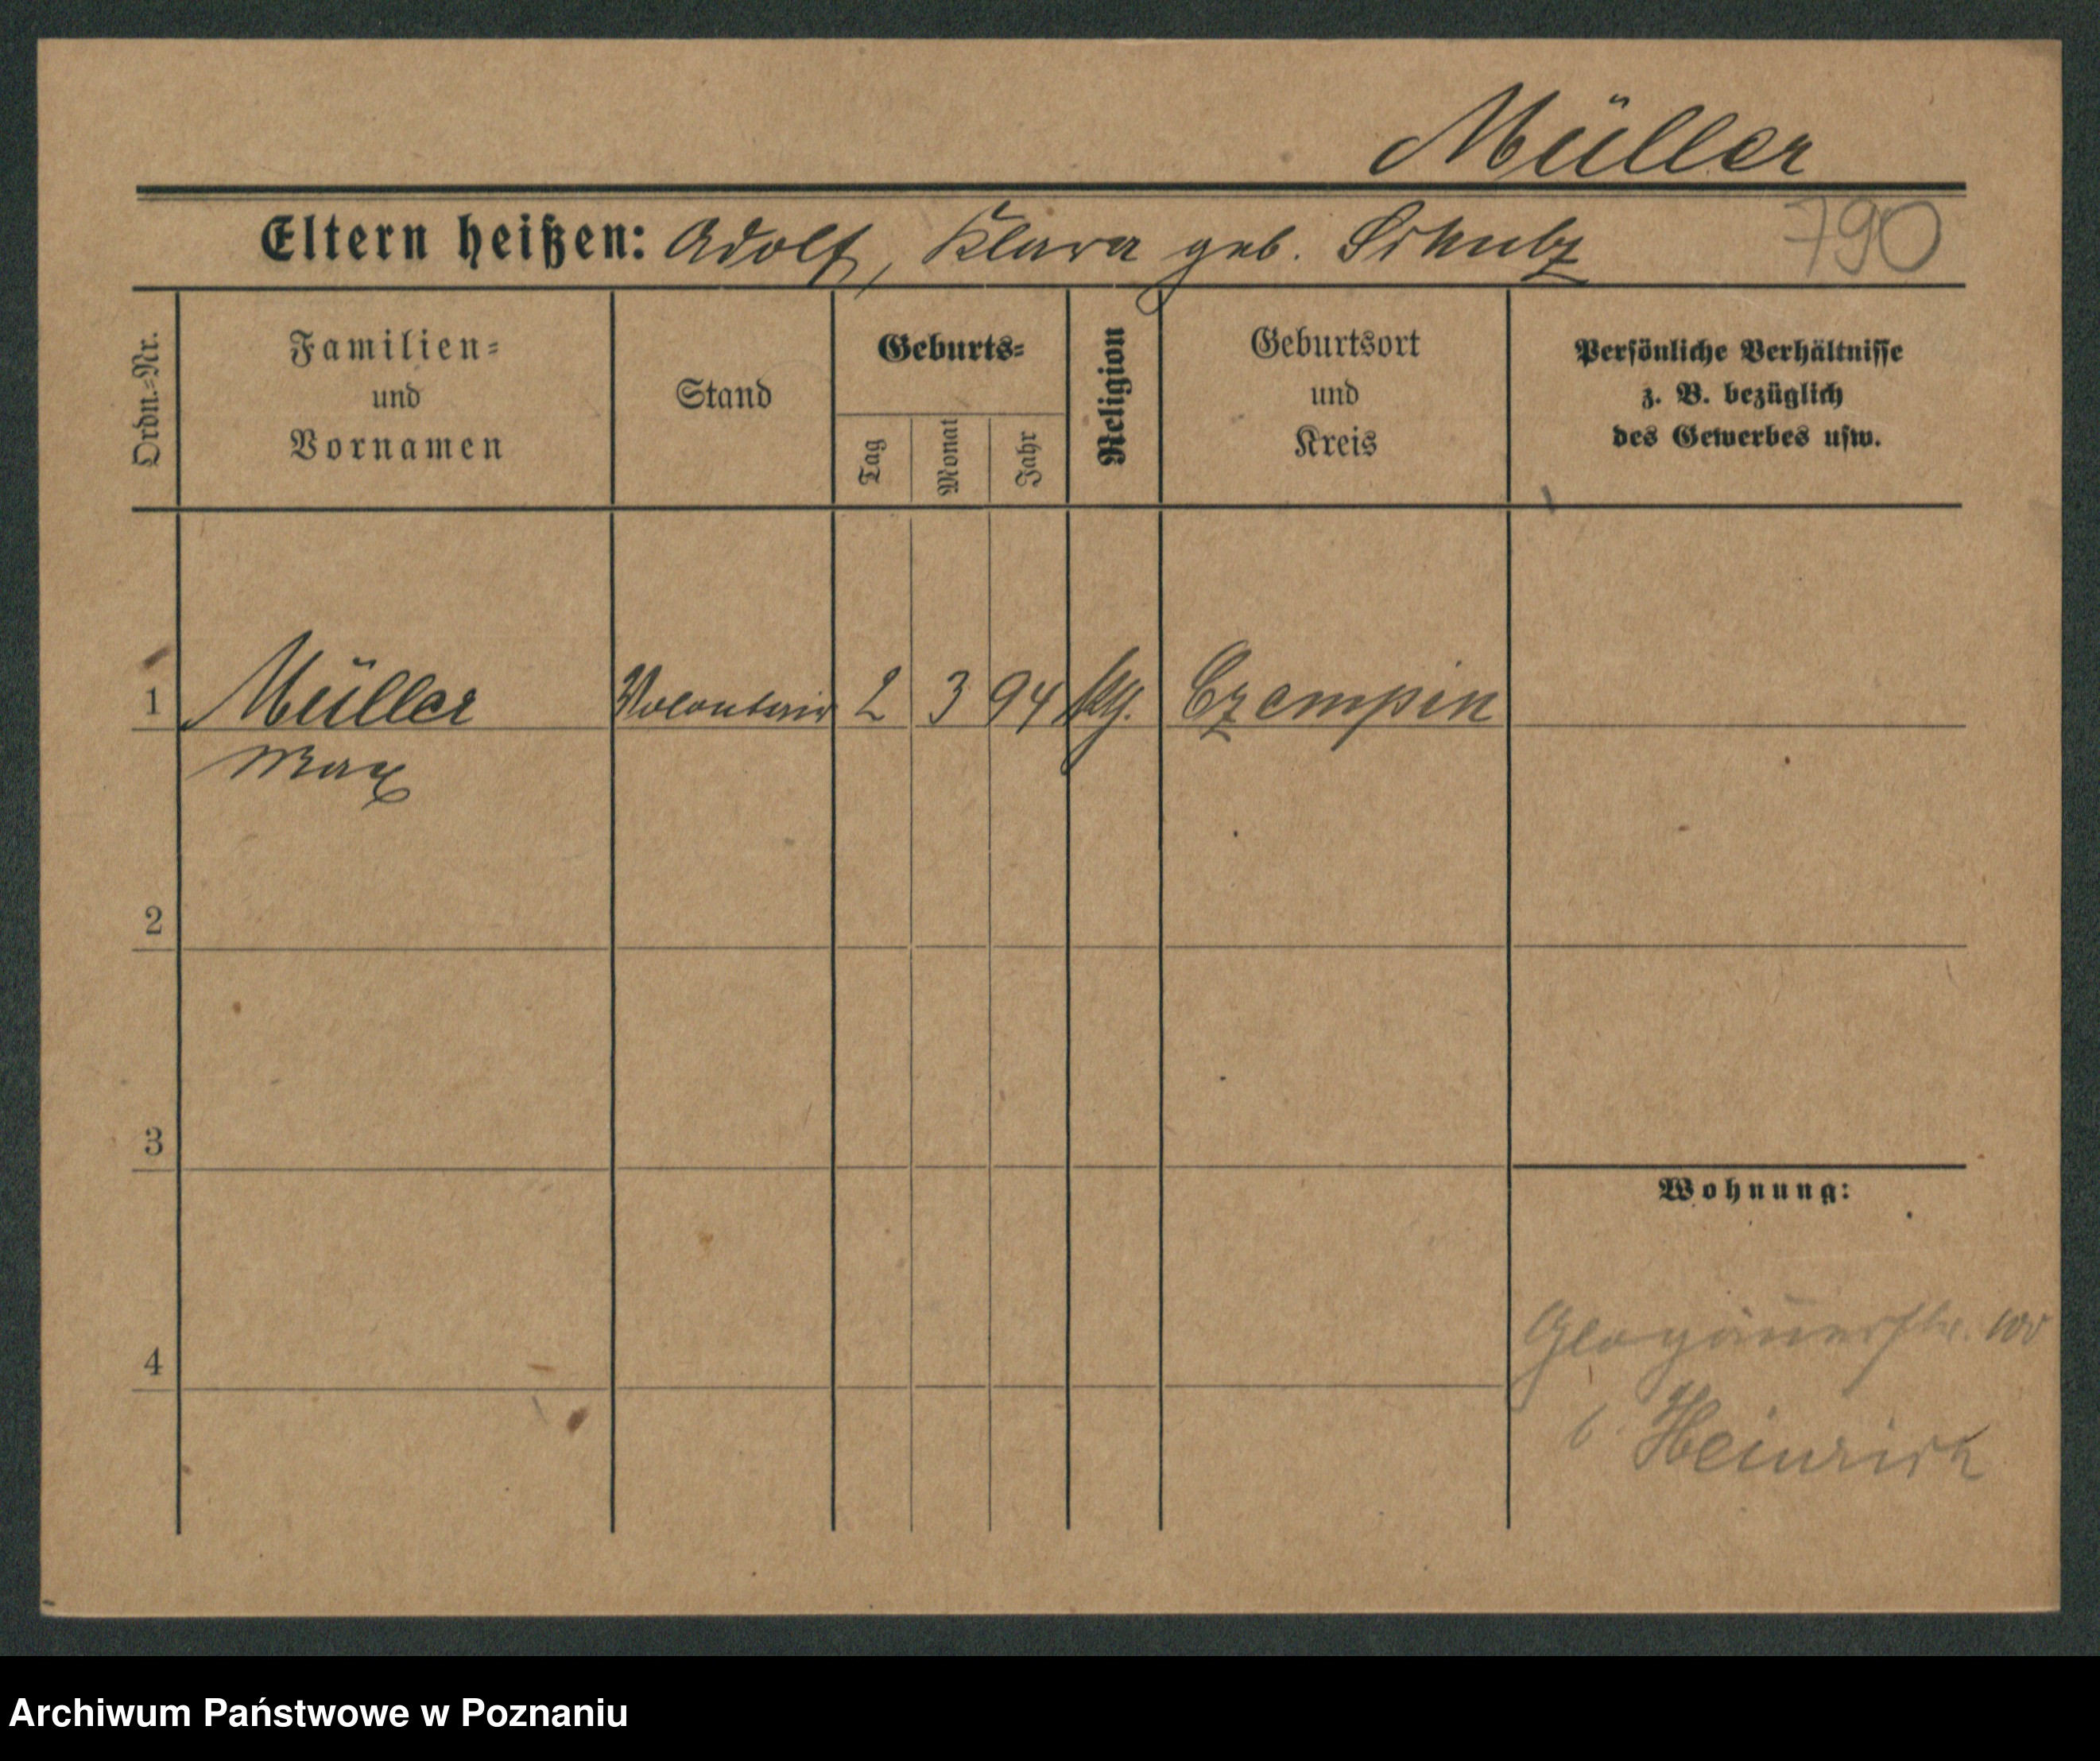 Müller
Eltern heißen: Adolf, Klara geb. Schulz 790
Ordn.-Nr.
Familien-
und
Vornamen
Stand
Geburts-
Tag
Monat
Jahr
Religion
Geburtsort
und
Kreis
Persönliche Verhältnisse
z. B. bezüglich
des Gewerbes usw.
1 Müller Volontair 2 3 94 Czempin
Max
2
3
Wohnung:
Glogauerstr. 100
4
b. Heinrich
Archiwum Państwowe w Poznaniu